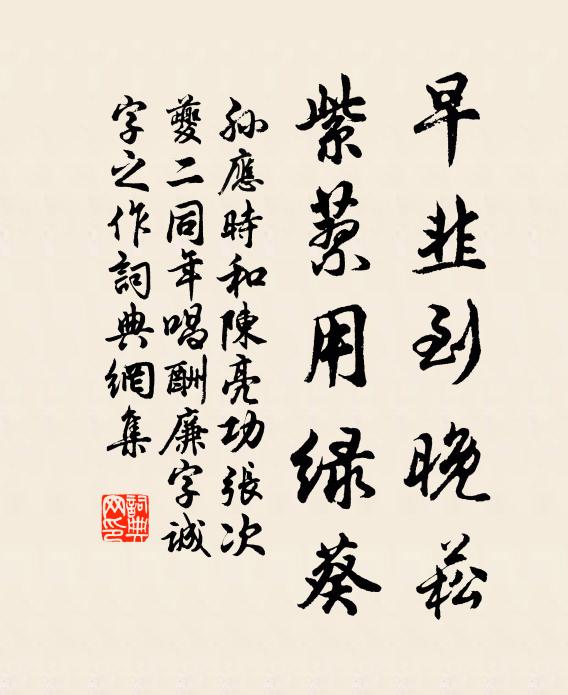 早韭到晚菘
紫蔡用绿葵
孙應時和陳亮功張次
夔二同年唱酬廉字誠
字之作詞典網集
詞典網印